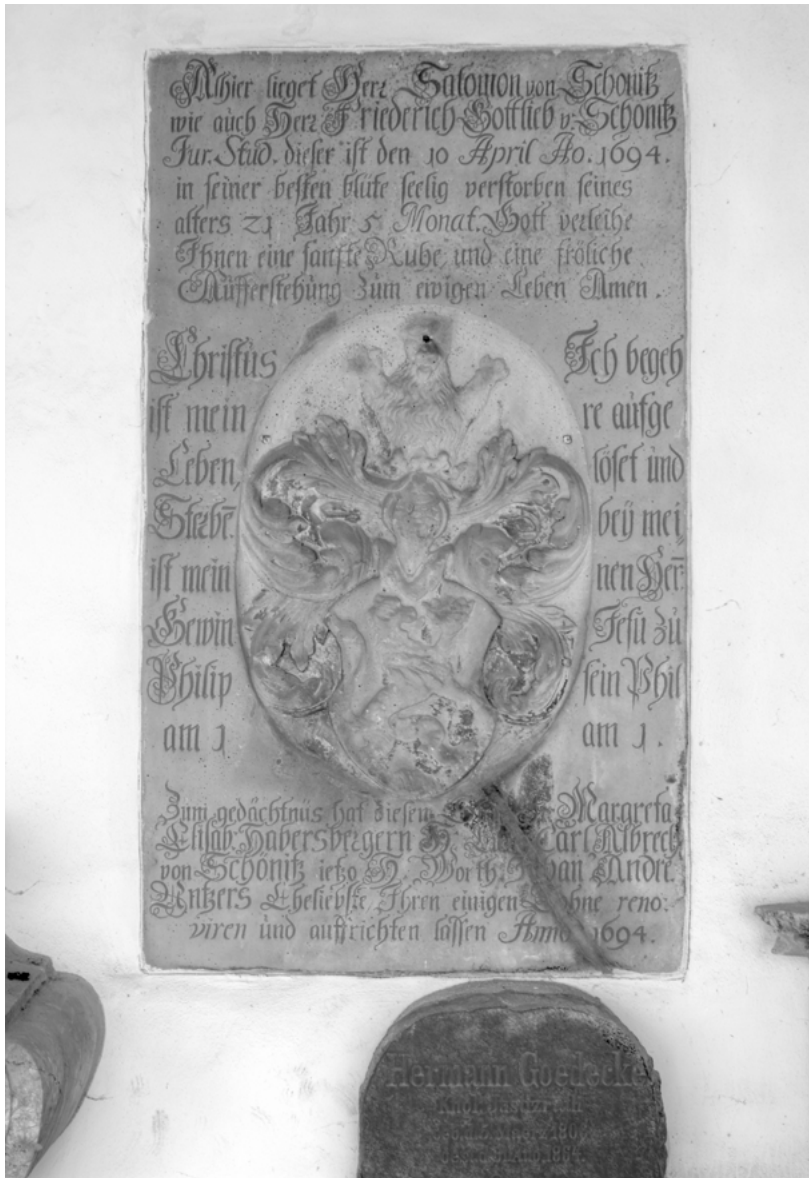 Alhier lieget Herr Salomon von Schönitz
wie auch Herr Friederich Gottlieb v. Schönitz
Jur. Stud. dieser ist den 10 April Ao. 1694.
in seiner besten blüte seelig verstorben seines
alters 21 Jahr 5 Monat. Gott verleihe
Ihnen eine sanfte Ruhe, und eine fröliche
Aufferstehung zum ewigen Leben Amen.
Christus
ist mein
Leben,
Sterbē
ist mein
Gewin
Philip
am 1
Ich begeh
re aufge
löset und
bey mei
nen Her̄:
Jesu zu
sein Phil
am 1.
Zum gedächtnüs hat diesen Margreta
Elisab. Habersbergern H. Carl Albrech
von Schönitz ietzo H. Worth. Andr.
Untzers Eheliebste, Ihren einigen reno:
viren und auffrichten lassen Anno 1694.
Hermann Goedecke